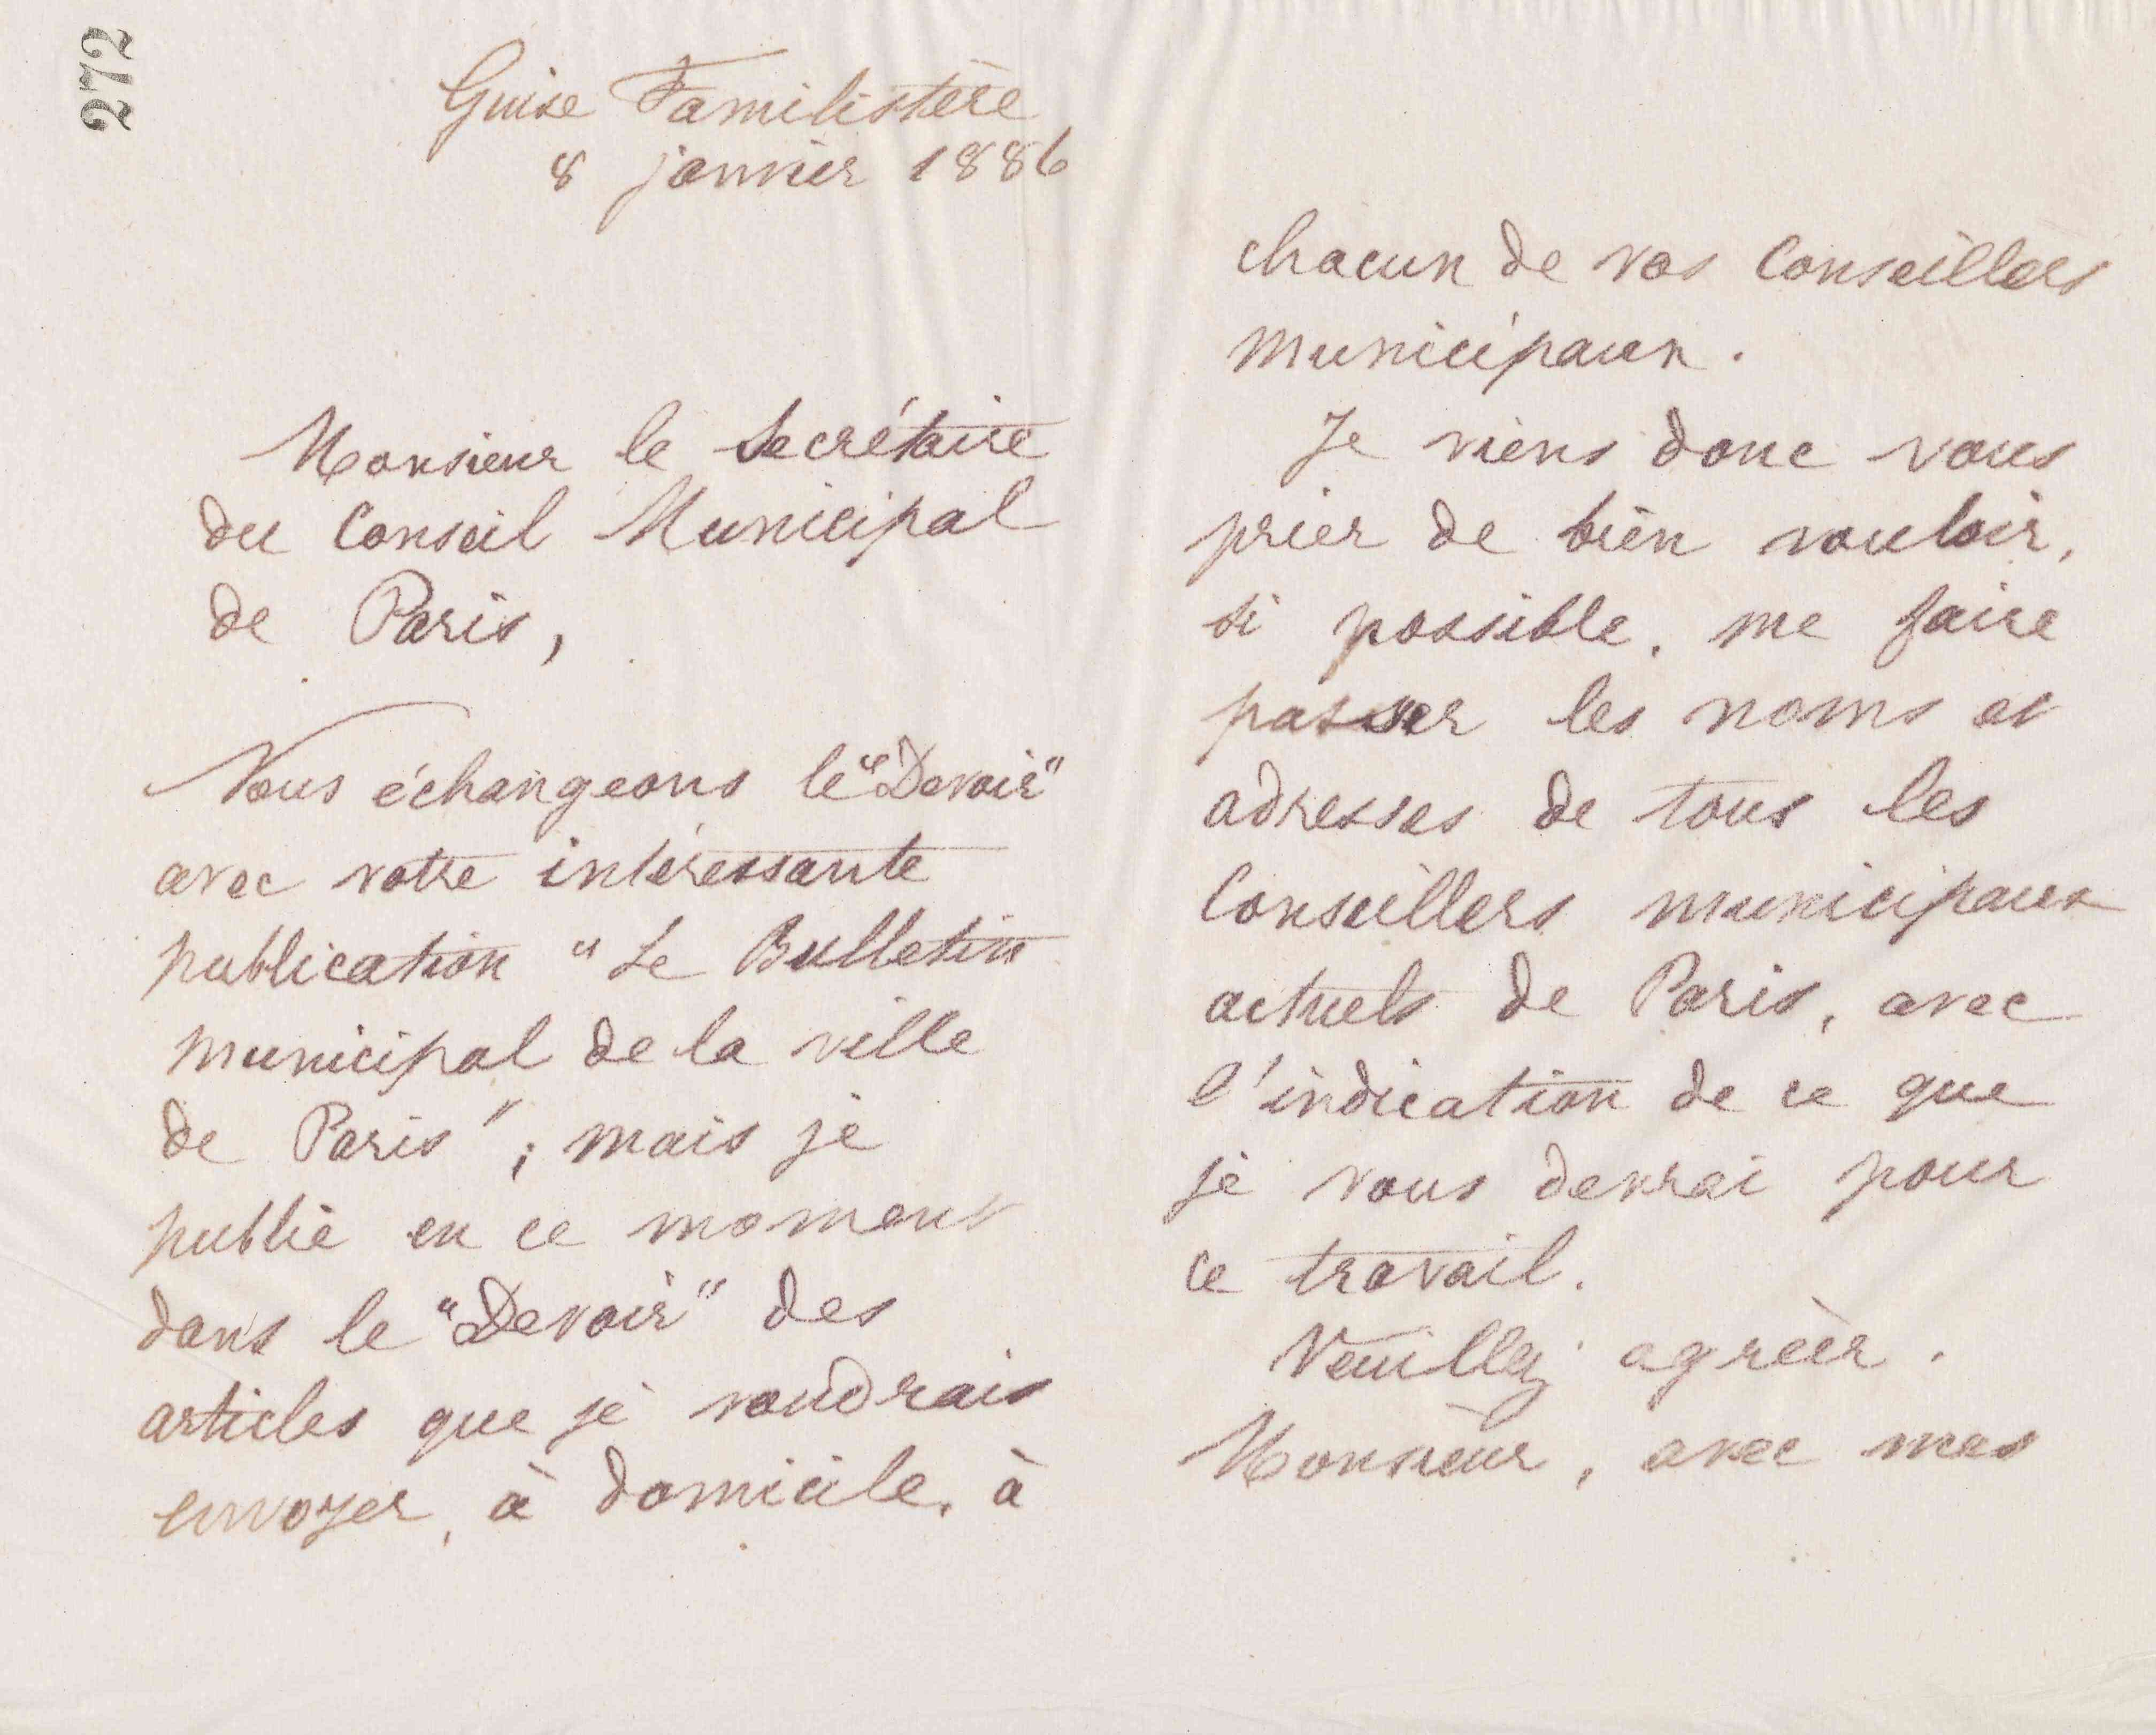 272
Guise Familistère
8 janvier 1886
Monsieur le Secrétaire
du Conseil Municipal
de Paris,
Nous échangeons le "Devoir"
avec votre intéressante
publication "Le Bulletin
municipal de la ville
de Paris"; mais je
publie en ce moment
dans le "Devoir" des
articles que je voudrais
envoyer, à domicile, à
chacun de vos Conseillers
municipaux.
Je viens donc vous
prier de bien vouloir,
si possible, me faire
passer les noms et
adresses de tous les
Conseillers municipaux
actuels de Paris, avec
l'indication de ce que
je vous devrai pour
ce travail.
Veuillez agréer,
Monsieur, avec mes